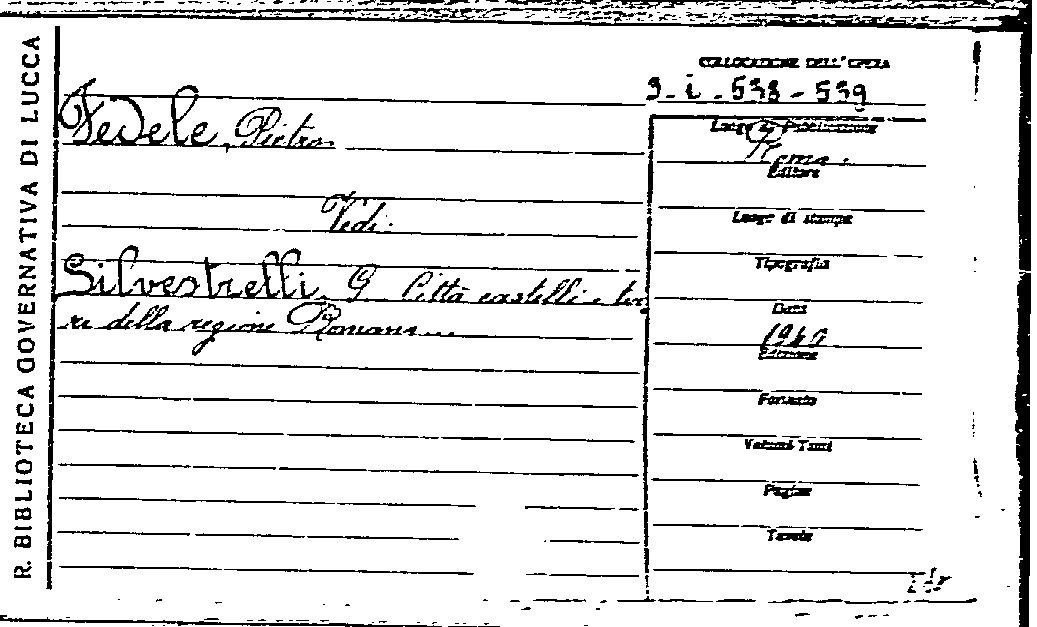 R. BIBLIOTECA GOVERNATIVA DI LUCCA
COLLOCAZIONE DELL'OPERA
9 - i - 538 - 539
Fedele, Pietro
Vedi:
Silvestrelli, G Città castelli e ter
re della regione Romana...
Luogo di Pubblicazione
Roma.
Editore
Luogo di stampa
Tipografia
Data
1940
Edizione
Formato
Volumi Tomi
Pagine
Tavole